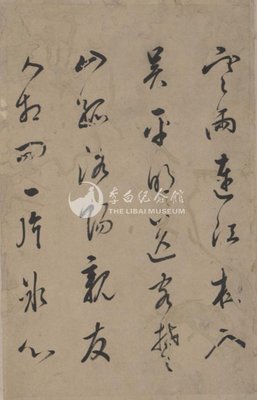 寒雨連江夜入
吳平明送客楚
山孤洛陽親友
如相問一片冰心
李白纪念馆
THE LIBAI MUSEUM